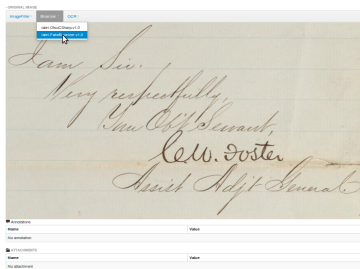 ORIGINAL IMAGE
ImageFilter
Binarize
OCR
I am Sir.
Very respectfully,
Your Obt Servant,
C.W. Foster
Assist Adjt General.
Annotations
Name Value
No annotation
ATTACHMENTS
Name Value
No attachment